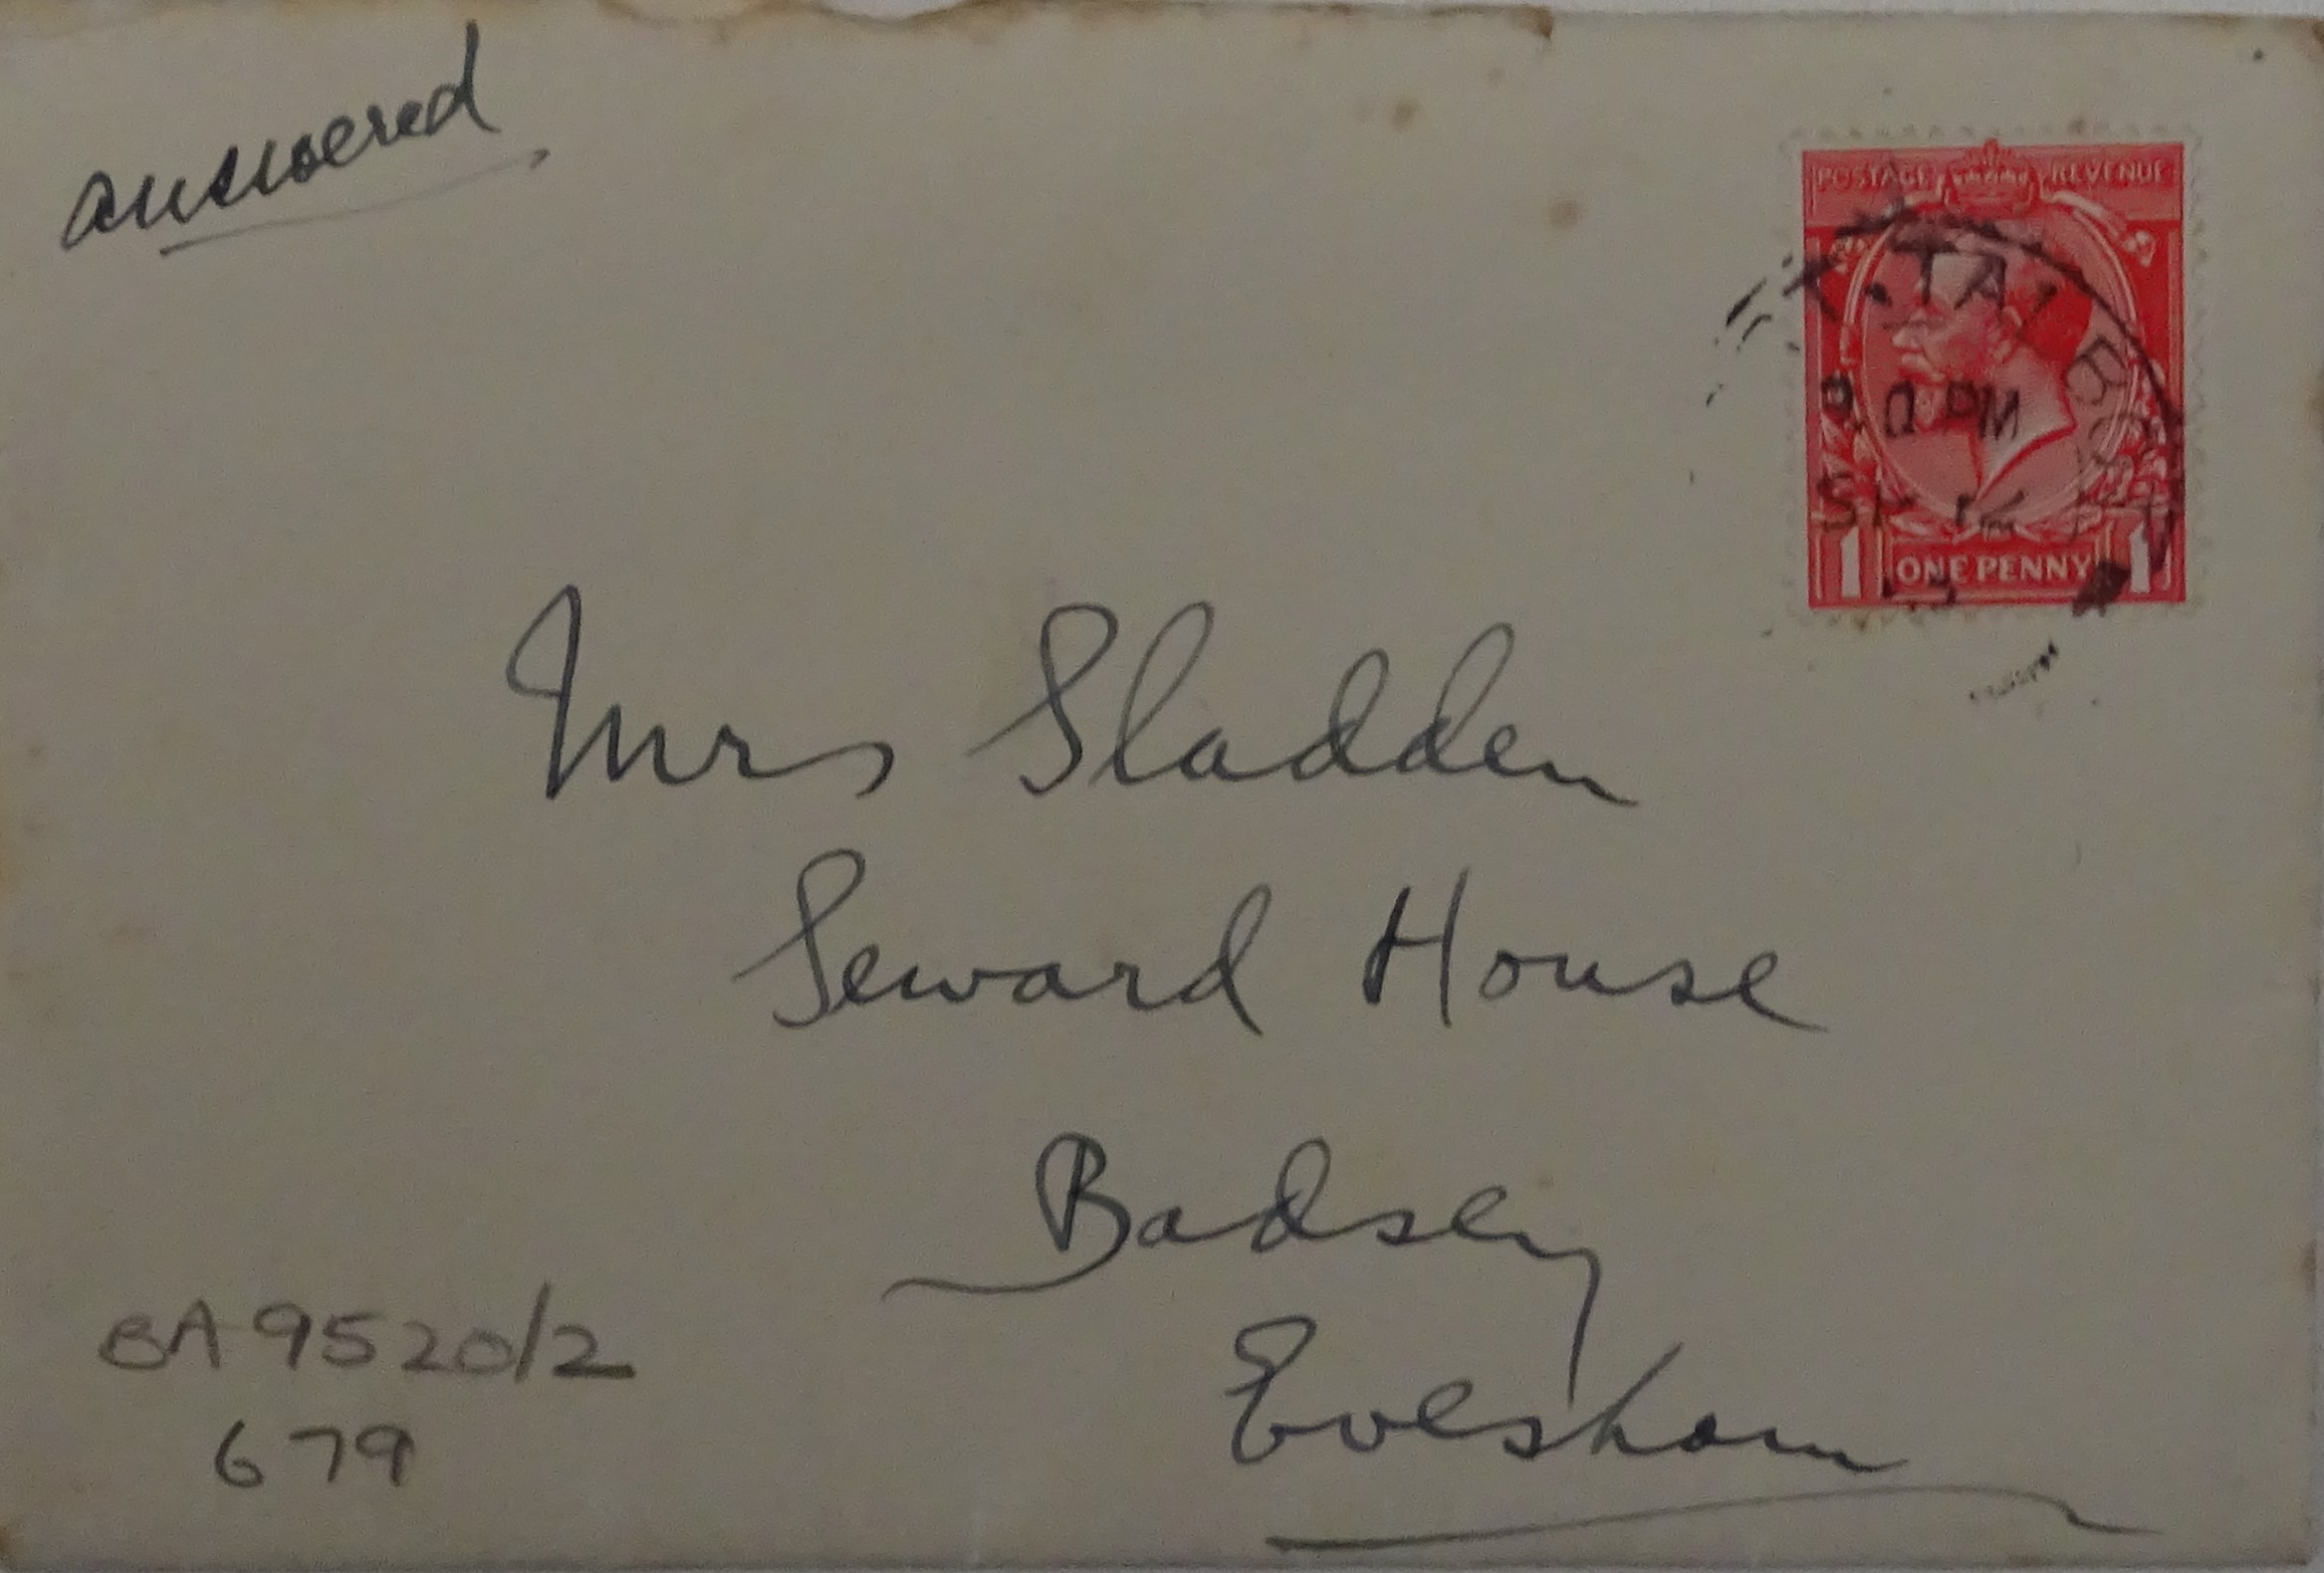 answered
POSTAGE REVENUE
PM
1 ONE PENNY 1
Mrs Sladden
Seward House
Badsey
Evesham
BA 9520/2
679